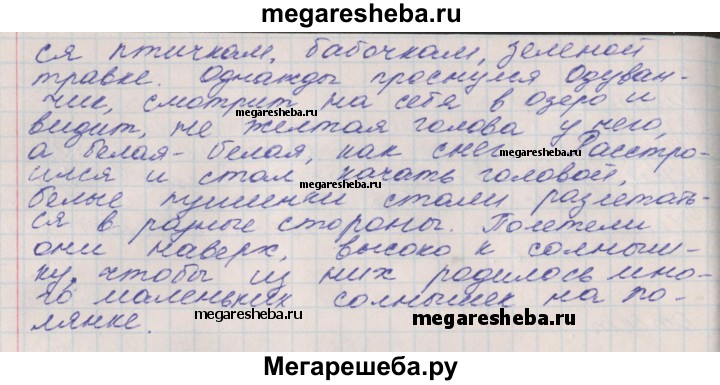 megaresheba.ru
ся птичкам, бабочкам, зеленой
травке. Однажды проснулся Одуван-
чик, смотрит на себя в озеро и
megaresheba.ru
видит, не желтая голова у него,
а белая-белая, как снег. Расстро-
megaresheba.ru
ился и стал качать головой,
megaresheba.ru
белые пушенки стали разлетать-
ся в разные стороны. Полетели
они наверх, высоко к солныш-
ку, чтобы из них родилось мно-
го маленьких солнышек на по-
megaresheba.ru
megaresheba.ru
лянке.
Мегарешеба.ру